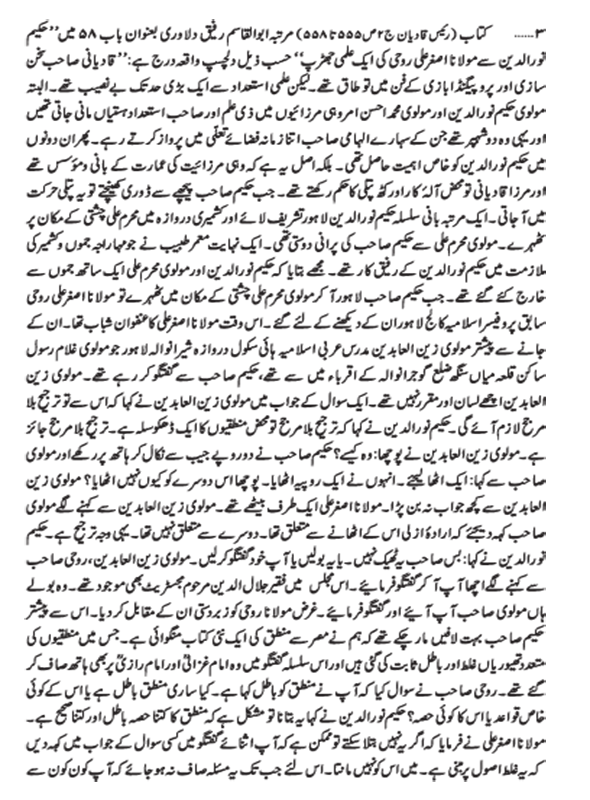 ۳...... کتاب (رئیس قادیان ج۲ ص۵۵۵ تا ۵۵۸) مرتبہ ابوالقاسم رفیق دلاوری بعنوان باب ۵۸ میں ’’حکیم
نورالدین سے مولانا اصغر علی روحی کی ایک علمی جھڑپ‘‘ حسب ذیل دلچسپ واقعہ درج ہے: ’’قادیانی صاحب سخن
سازی اور پروپیگنڈا بازی کے فن میں تو طاق تھے۔ لیکن علمی استعداد سے ایک بڑی حد تک بے نصیب تھے۔ البتہ
مولوی حکیم نورالدین اور مولوی محمد احسن امروہی مرزائیوں میں ذی علم اور صاحب استعداد ہستیاں مانی جاتی تھیں
اور یہی وہ دو شہپر تھے جن کے سہارے الہامی صاحب اتنا زمانہ فضائے تعلّی میں پرواز کرتے رہے۔ پھر ان دونوں
میں حکیم نورالدین کو خاص اہمیت حاصل تھی۔ بلکہ اصل یہ ہے کہ وہی مرزائیت کی عمارت کے بانی ومؤسس تھے
اور مرزا قادیانی تو محض آلۂ کار اور کٹھ پتلی کا حکم رکھتے تھے۔ جب حکیم صاحب پیچھے سے ڈوری کھینچتے تو یہ پتلی حرکت
میں آجاتی۔ ایک مرتبہ بانی سلسلہ حکیم نورالدین لاہور تشریف لائے اور کشمیری دروازہ میں محرم علی چشتی کے مکان پر
ٹھہرے۔ مولوی محرم علی سے حکیم صاحب کی پرانی دوستی تھی۔ ایک نہایت معمر طبیب نے جو مہاراجہ جموں وکشمیر کی
ملازمت میں حکیم نورالدین کے رفیق کار تھے۔ مجھے بتایا کہ حکیم نورالدین اور مولوی محرم علی ایک ساتھ جموں سے
خارج کئے گئے تھے۔ جب حکیم صاحب لاہور آ کر مولوی محرم علی چشتی کے مکان میں ٹھہرے تو مولانا اصغر علی روحی
سابق پروفیسر اسلامیہ کالج لاہور ان کے دیکھنے کے لئے گئے۔ اس وقت مولانا اصغر علی کا عنفوان شباب تھا۔ ان کے
جانے سے پیشتر مولوی زین العابدین مدرس عربی اسلامیہ ہائی سکول دروازہ شیرانوالہ لاہور جو مولوی غلام رسول
ساکن قلعہ میاں سنگھ ضلع گوجرانوالہ کے اقرباء میں سے تھے، حکیم صاحب سے گفتگو کر رہے تھے۔ مولوی زین
العابدین اچھے لسان اور مقرر نہیں تھے۔ ایک سوال کے جواب میں مولوی زین العابدین نے کہا کہ اس سے تو ترجیح بلا
مرجح لازم آئے گی۔ حکیم نورالدین نے کہا کہ ترجیح بلا مرجح تو محض منطقیوں کا ایک ڈھکوسلہ ہے۔ ترجیح بلا مرجح جائز
ہے۔ مولوی زین العابدین نے پوچھا: وہ کیسے؟ حکیم صاحب نے دو روپے جیب سے نکال کر ہاتھ پر رکھے اور مولوی
صاحب سے کہا: ایک اٹھا لیجئے۔ انہوں نے ایک روپیہ اٹھایا۔ پوچھا اس دوسرے کو کیوں نہیں اٹھایا؟ مولوی زین
العابدین سے کچھ جواب نہ بن پڑا۔ مولانا اصغر علی ایک طرف بیٹھے تھے۔ مولوی زین العابدین سے کہنے لگے مولوی
صاحب کہہ دیجئے کہ ارادۂ ازلی اس کے اٹھانے سے متعلق تھا۔ دوسرے سے متعلق نہیں تھا۔ یہی وجہ ترجیح ہے۔ حکیم
نورالدین نے کہا: بس صاحب یہ ٹھیک نہیں۔ یا یہ بولیں یا آپ خود گفتگو کرلیں۔ مولوی زین العابدین، روحی صاحب
سے کہنے لگے اچھا آپ آ کر گفتگو فرمائیے۔ اس مجلس میں فقیر جلال الدین مرحوم مجسٹریٹ بھی موجود تھے۔ وہ بولے
ہاں مولوی صاحب آپ آئیے اور گفتگو فرمائیے۔ غرض مولانا روحی کو زبردستی ان کے مقابل کردیا۔ اس سے پیشتر
حکیم صاحب بہت لافیں مار چکے تھے کہ ہم نے مصر سے منطق کی ایک نئی کتاب منگوائی ہے۔ جس میں منطقیوں کی
متعدد تھیوریاں غلط اور باطل ثابت کی گئی ہیں اور اس سلسلہ گفتگو میں وہ امام غزالیؒ اور امام رازیؒ پر بھی ہاتھ صاف کر
گئے تھے۔ روحی صاحب نے سوال کیا کہ آپ نے منطق کو باطل کہا ہے۔ کیا ساری منطق باطل ہے یا اس کے کوئی
خاص قواعد یا اس کا کوئی حصہ؟ حکیم نورالدین نے کہا یہ بتانا تو مشکل ہے کہ منطق کا کتنا حصہ باطل اور کتنا صحیح ہے۔
مولانا اصغر علی نے فرمایا کہ اگر یہ نہیں بتلا سکتے تو ممکن ہے کہ آپ اثنائے گفتگو میں کسی سوال کے جواب میں کہہ دیں
کہ یہ غلط اصول پر مبنی ہے۔ میں اس کو نہیں مانتا۔ اس لئے جب تک یہ مسئلہ صاف نہ ہو جائے کہ آپ کون کون سے